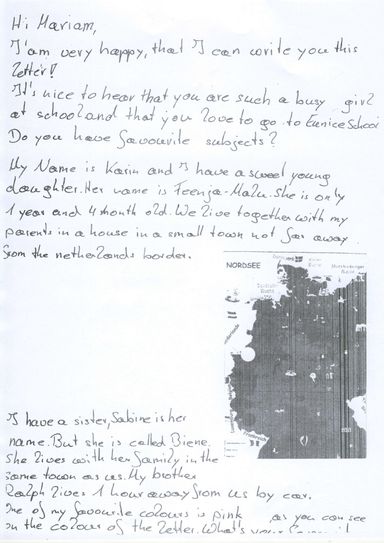 Hi Mariam,
I'am very happy, that I can write you this
letter!
It's nice to hear that you are such a busy girl
at school and that you love to go to Eunice School
Do you have favourite subjects?
My Name is Karin and I have a sweet young
daughter. Her name is Feenja-Malu. She is only
1 year and 4 month old. We live together with my
parents in a house in a small town not far away
from the netherlands border.
NORDSEE
I have a sister, Sabine is her
name. But she is called Biene.
She lives with her family in the
same town as us. My brother
Ralph lives 1 hour away from us by car.
One of my favourite colours is pink as you can see
on the colour of the letter. What's